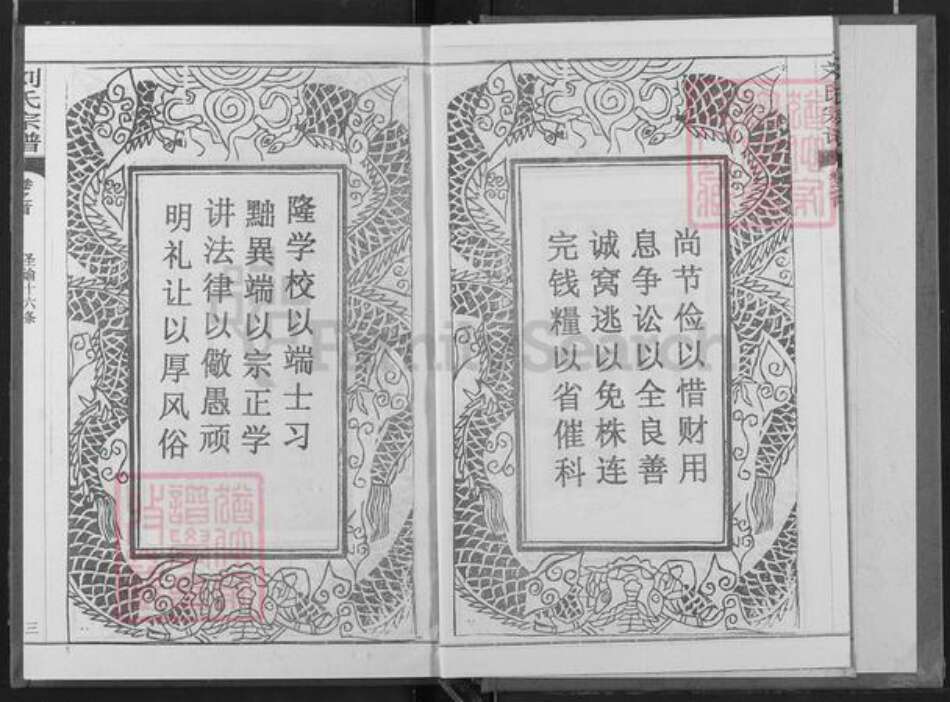 尚节俭以惜财用
息争讼以全良善
诚窝逃以免株连
完钱糧以省催科
隆学校以端士习
黜異端以宗正学
讲法律以儆愚顽
明礼让以厚风俗
刘氏宗谱
卷之首
圣谕十六条
三